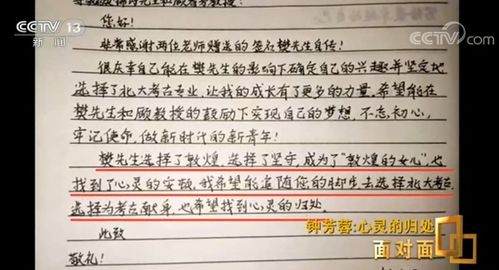 CCTV 13
新闻
CCTV.com
先生和顾教授:
您好!
非常感谢两位老师赠送的签名樊先生自传!
很庆幸自己能在樊先生的影响下确定自己的兴趣并坚定地
选择了北大考古专业,让我的成长有了更多的力量,希望能在
樊先生和顾教授的鼓励下实现自己的梦想,不忘初心,
牢记使命,做新时代的新青年!
樊先生选择了敦煌,选择了坚守,成为了“敦煌的女儿”,也
找到了心灵的安顿,我希望能追随您的脚步去选择北大考古,
选择为考古献身,也希望找到心灵的归处.
此致
敬礼!
钟芳蓉:心灵的归处
面对面